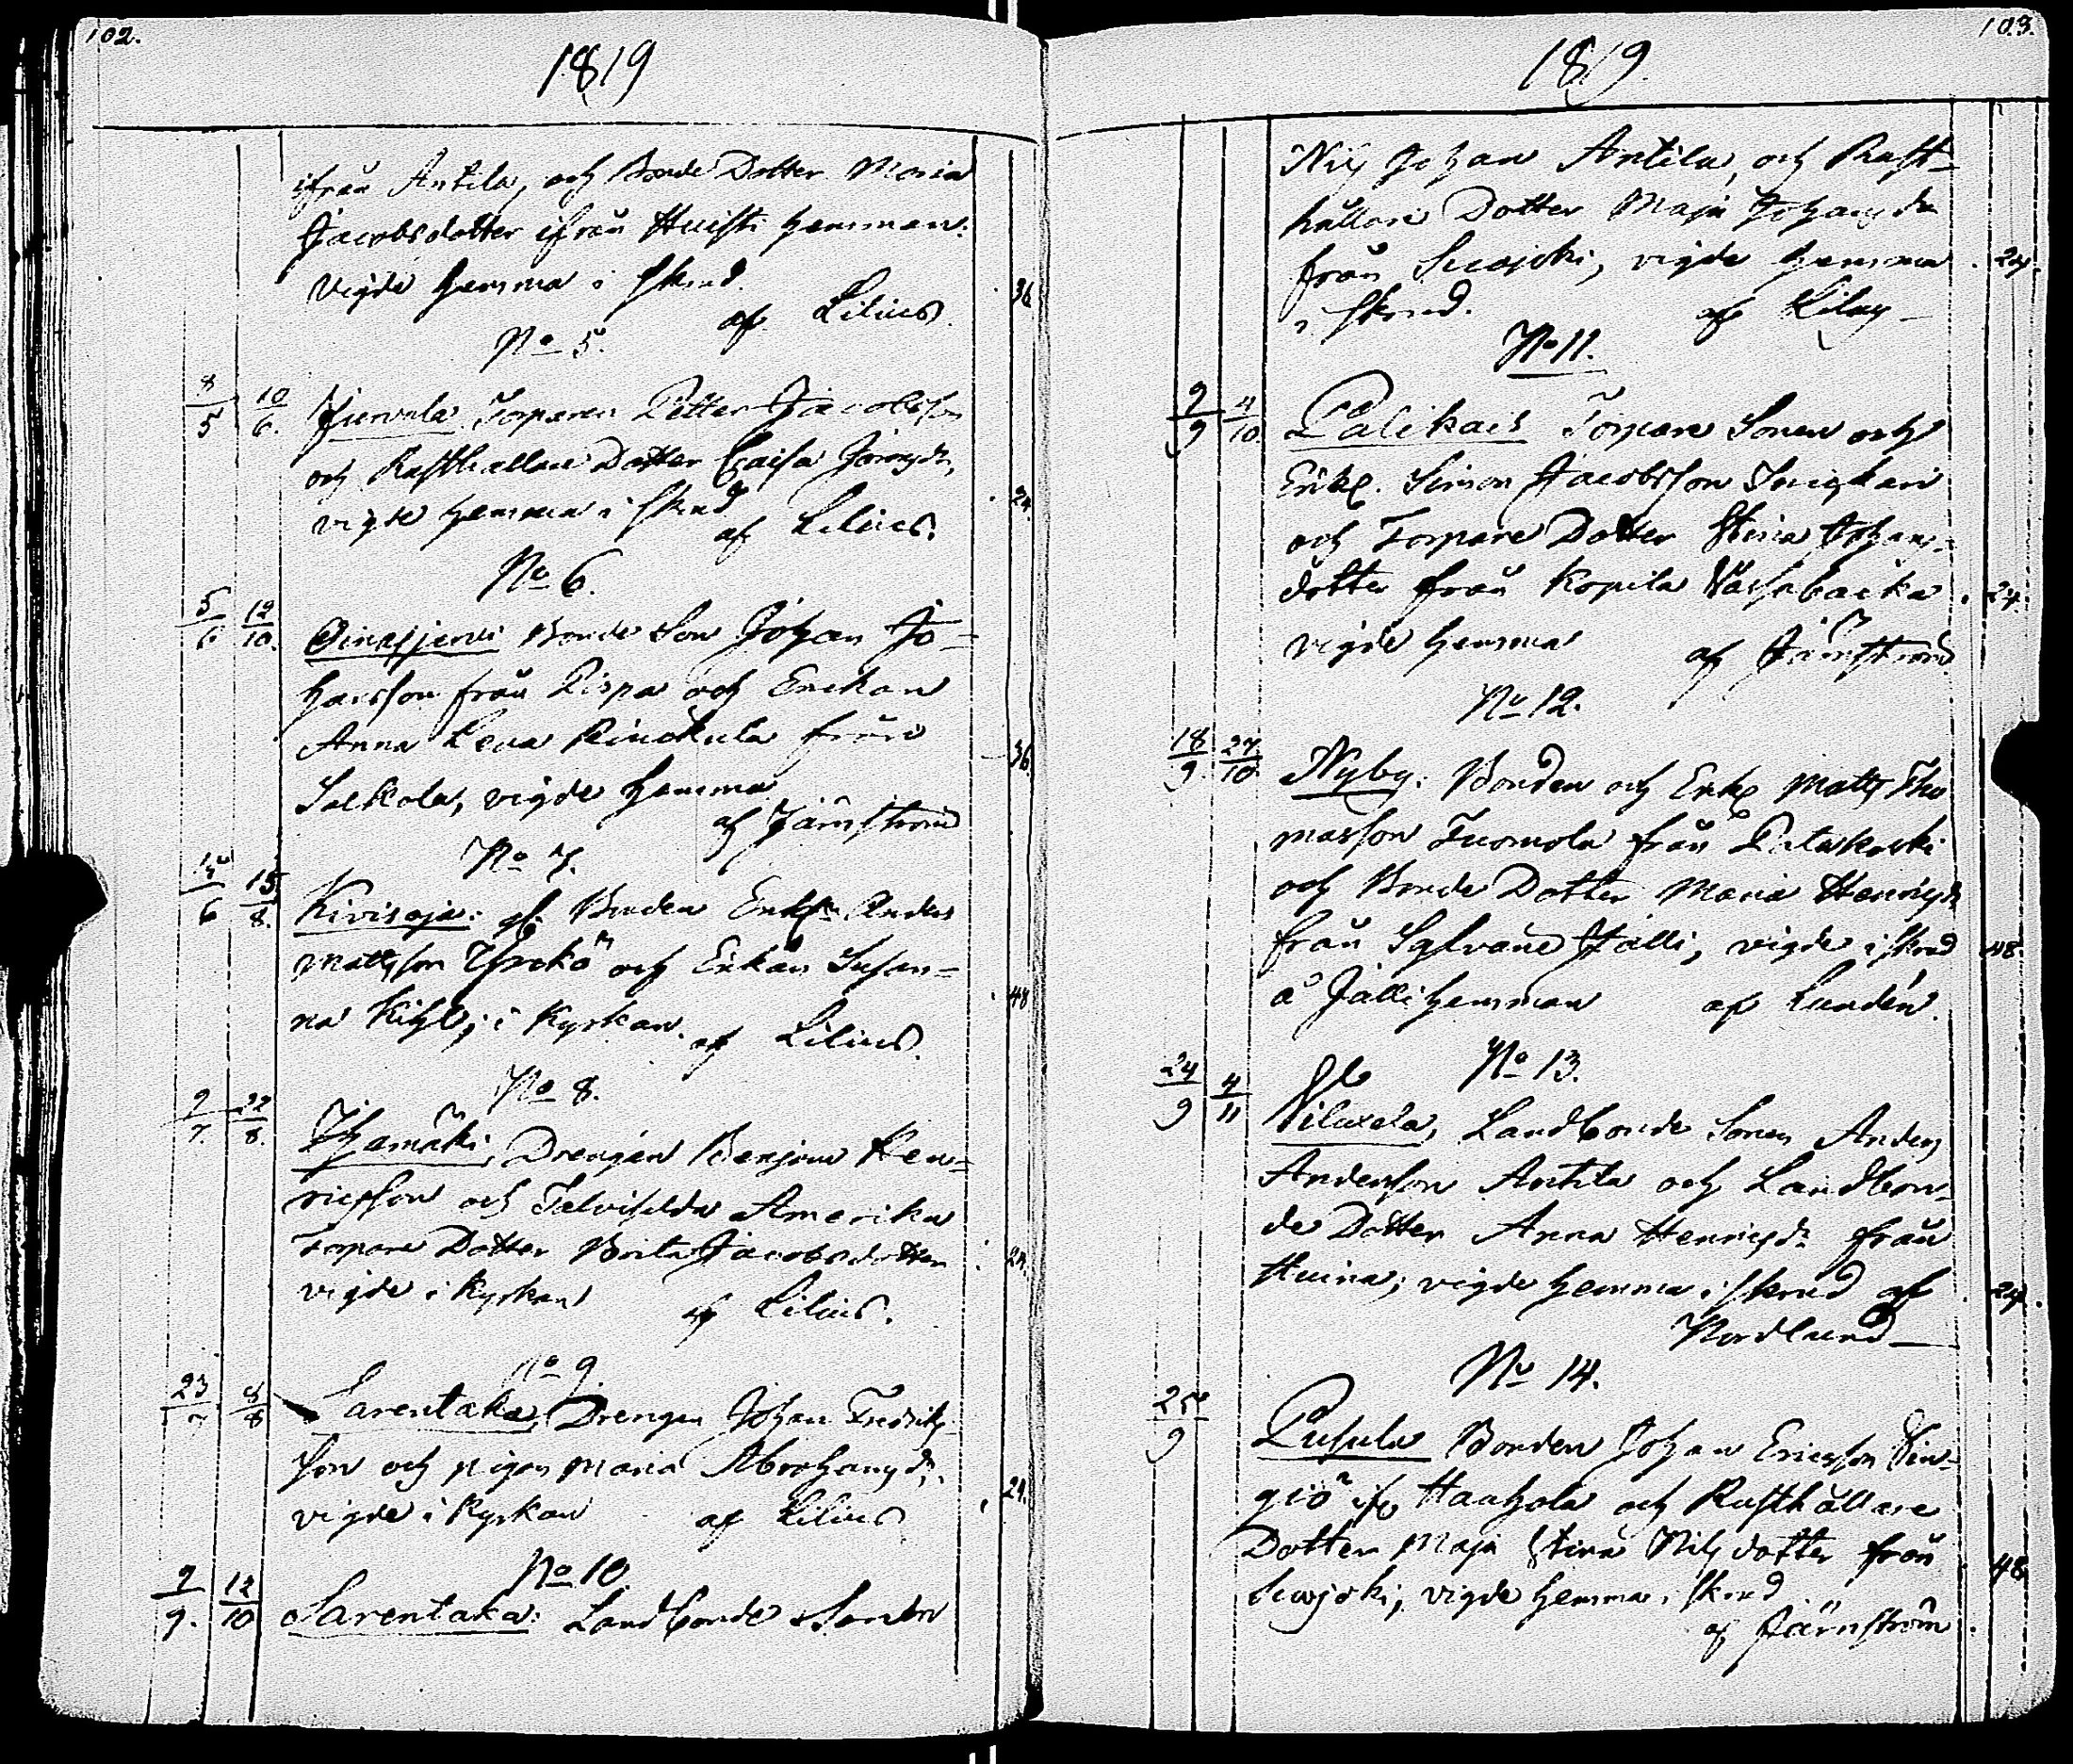 102.
1819
ifrån Antila, och Bonde Dotter Maria
Jacobsdotter ifrån Huisti hemman:
Vigde hemma i skrud. 36
af Lilius.
No 5.
8/5 10/6. Jurvala Torparen Petter Jacobsson
och Rusthållare Dotter Caisa
vigde hemma i skrud 24.
af Lilius.
No 6.
5/6 12/10. Oinasjervi Bonde Son Johan Jo-
hansson från Pispa och Enckan
Anna Leva från 36.
Salkola, vigde hemma
af Järnström
No 7.
15/6 15/8. Kivisoja: Bonden Enkl. Anders
Mattsson Yrckö och Enkan Susan-
na Kihl; i Kyrkan. 48
af Lilius.
No 8.
9/7. 22/8. Ihamäki, Drengen Benjam Hen-
ricsson och Amerika
Torpare Dotter Brita Jacobsdotter 24.
vigde i Kyrkan
af Lilius.
No 9.
23/7 8/8 Sarentaka, Drengen Johan Fredriks-
son och pigan Maria Abrahamsdr.
vigde i Kyrkan af Lilius 24.
No 10.
9/9. 12/10 Sarentaka: Landbonde Sonen
103.
1819.
Nils Johan Antila, och Rust-
hållare Dotter Maja Johansdr
från Suojoki, vigde hemma 24.
i skrud. af Lilius
No 11.
9/9 4/10. Palikais Torpare Sonen och
Enkl. Simon Jacobsson
och Torpare Dotter Stina Johans-
dotter från Kopila Vassabacka 24.
vigde hemma af Järnström
No 12.
18/9. 27/10 Nyby: Bonden och Enkl Matts Tho
masson Tuomola från Patakoski
och Bonde Dotter Maria Henrichsdr
från Sylvane Jälli, vigde i skrud 48.
å Jälli hemman af Lundén.
No 13.
24/9 4/11 Viluxela, Landbonde Sonen Anders
Andersson Antila och Landbon-
de Dotter Anna Henricsdr från
Huina; vigde hemma i skrud af 24.
Nordlund
No 14.
25/9 Pusula Bonden Johan Ericsson Vin-
giö ifr. Hauhola och Rusthållare
Dotter Maja Stina Nilsdotter från 48
Suojoki; vigde hemma i skrud
af Järnström.